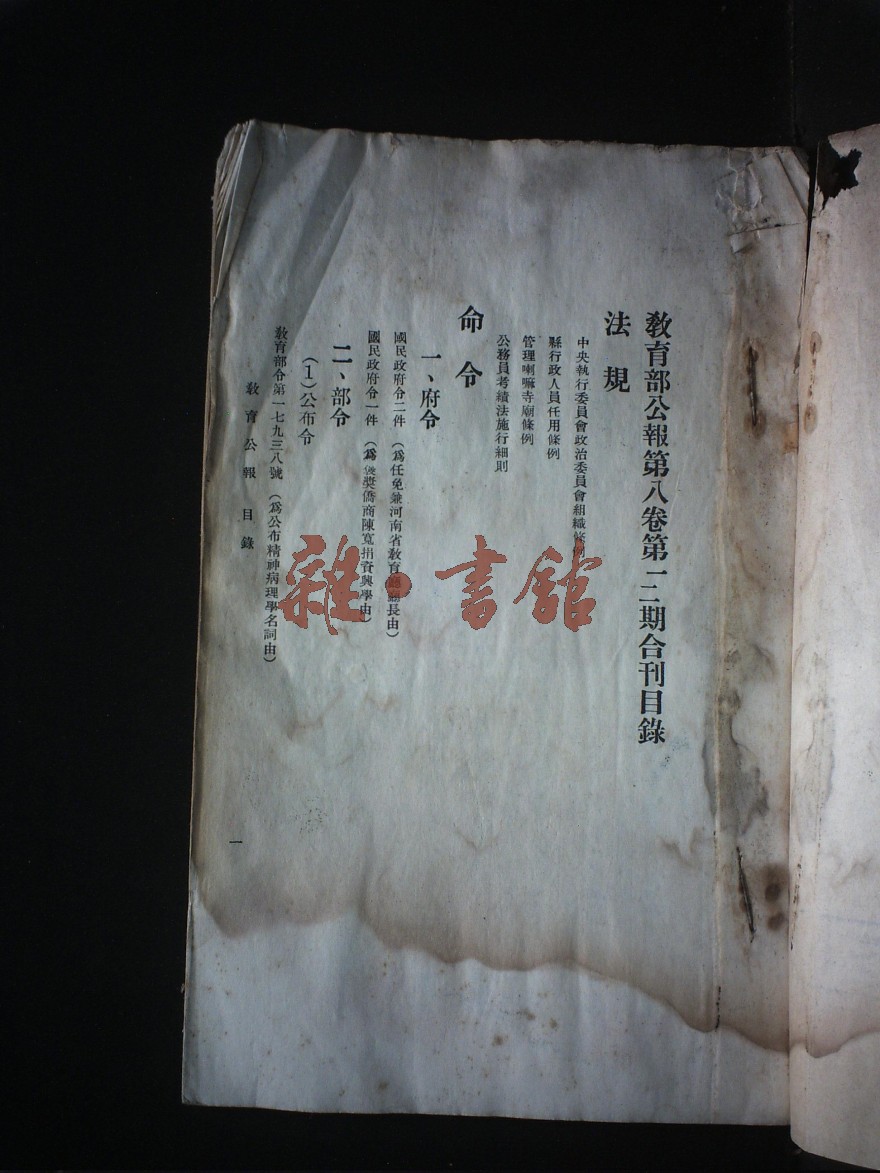 教育部公報第八卷第一二期合刊目錄
法規
中央執行委員會政治委員會組織條例
縣行政人員任用條例
管理喇嘛寺廟條例
公務員考績法施行細則
命令
一、府令
國民政府令二件 (爲任免兼河南省教育廳廳長由)
國民政府令一件 (爲 獎僑商陳寬捐資興學由)
二、部令
(1)公布令
教育部令第一七九三八號 (爲公布精神病理學名詞由)
教育公報 目錄
一
雜書館